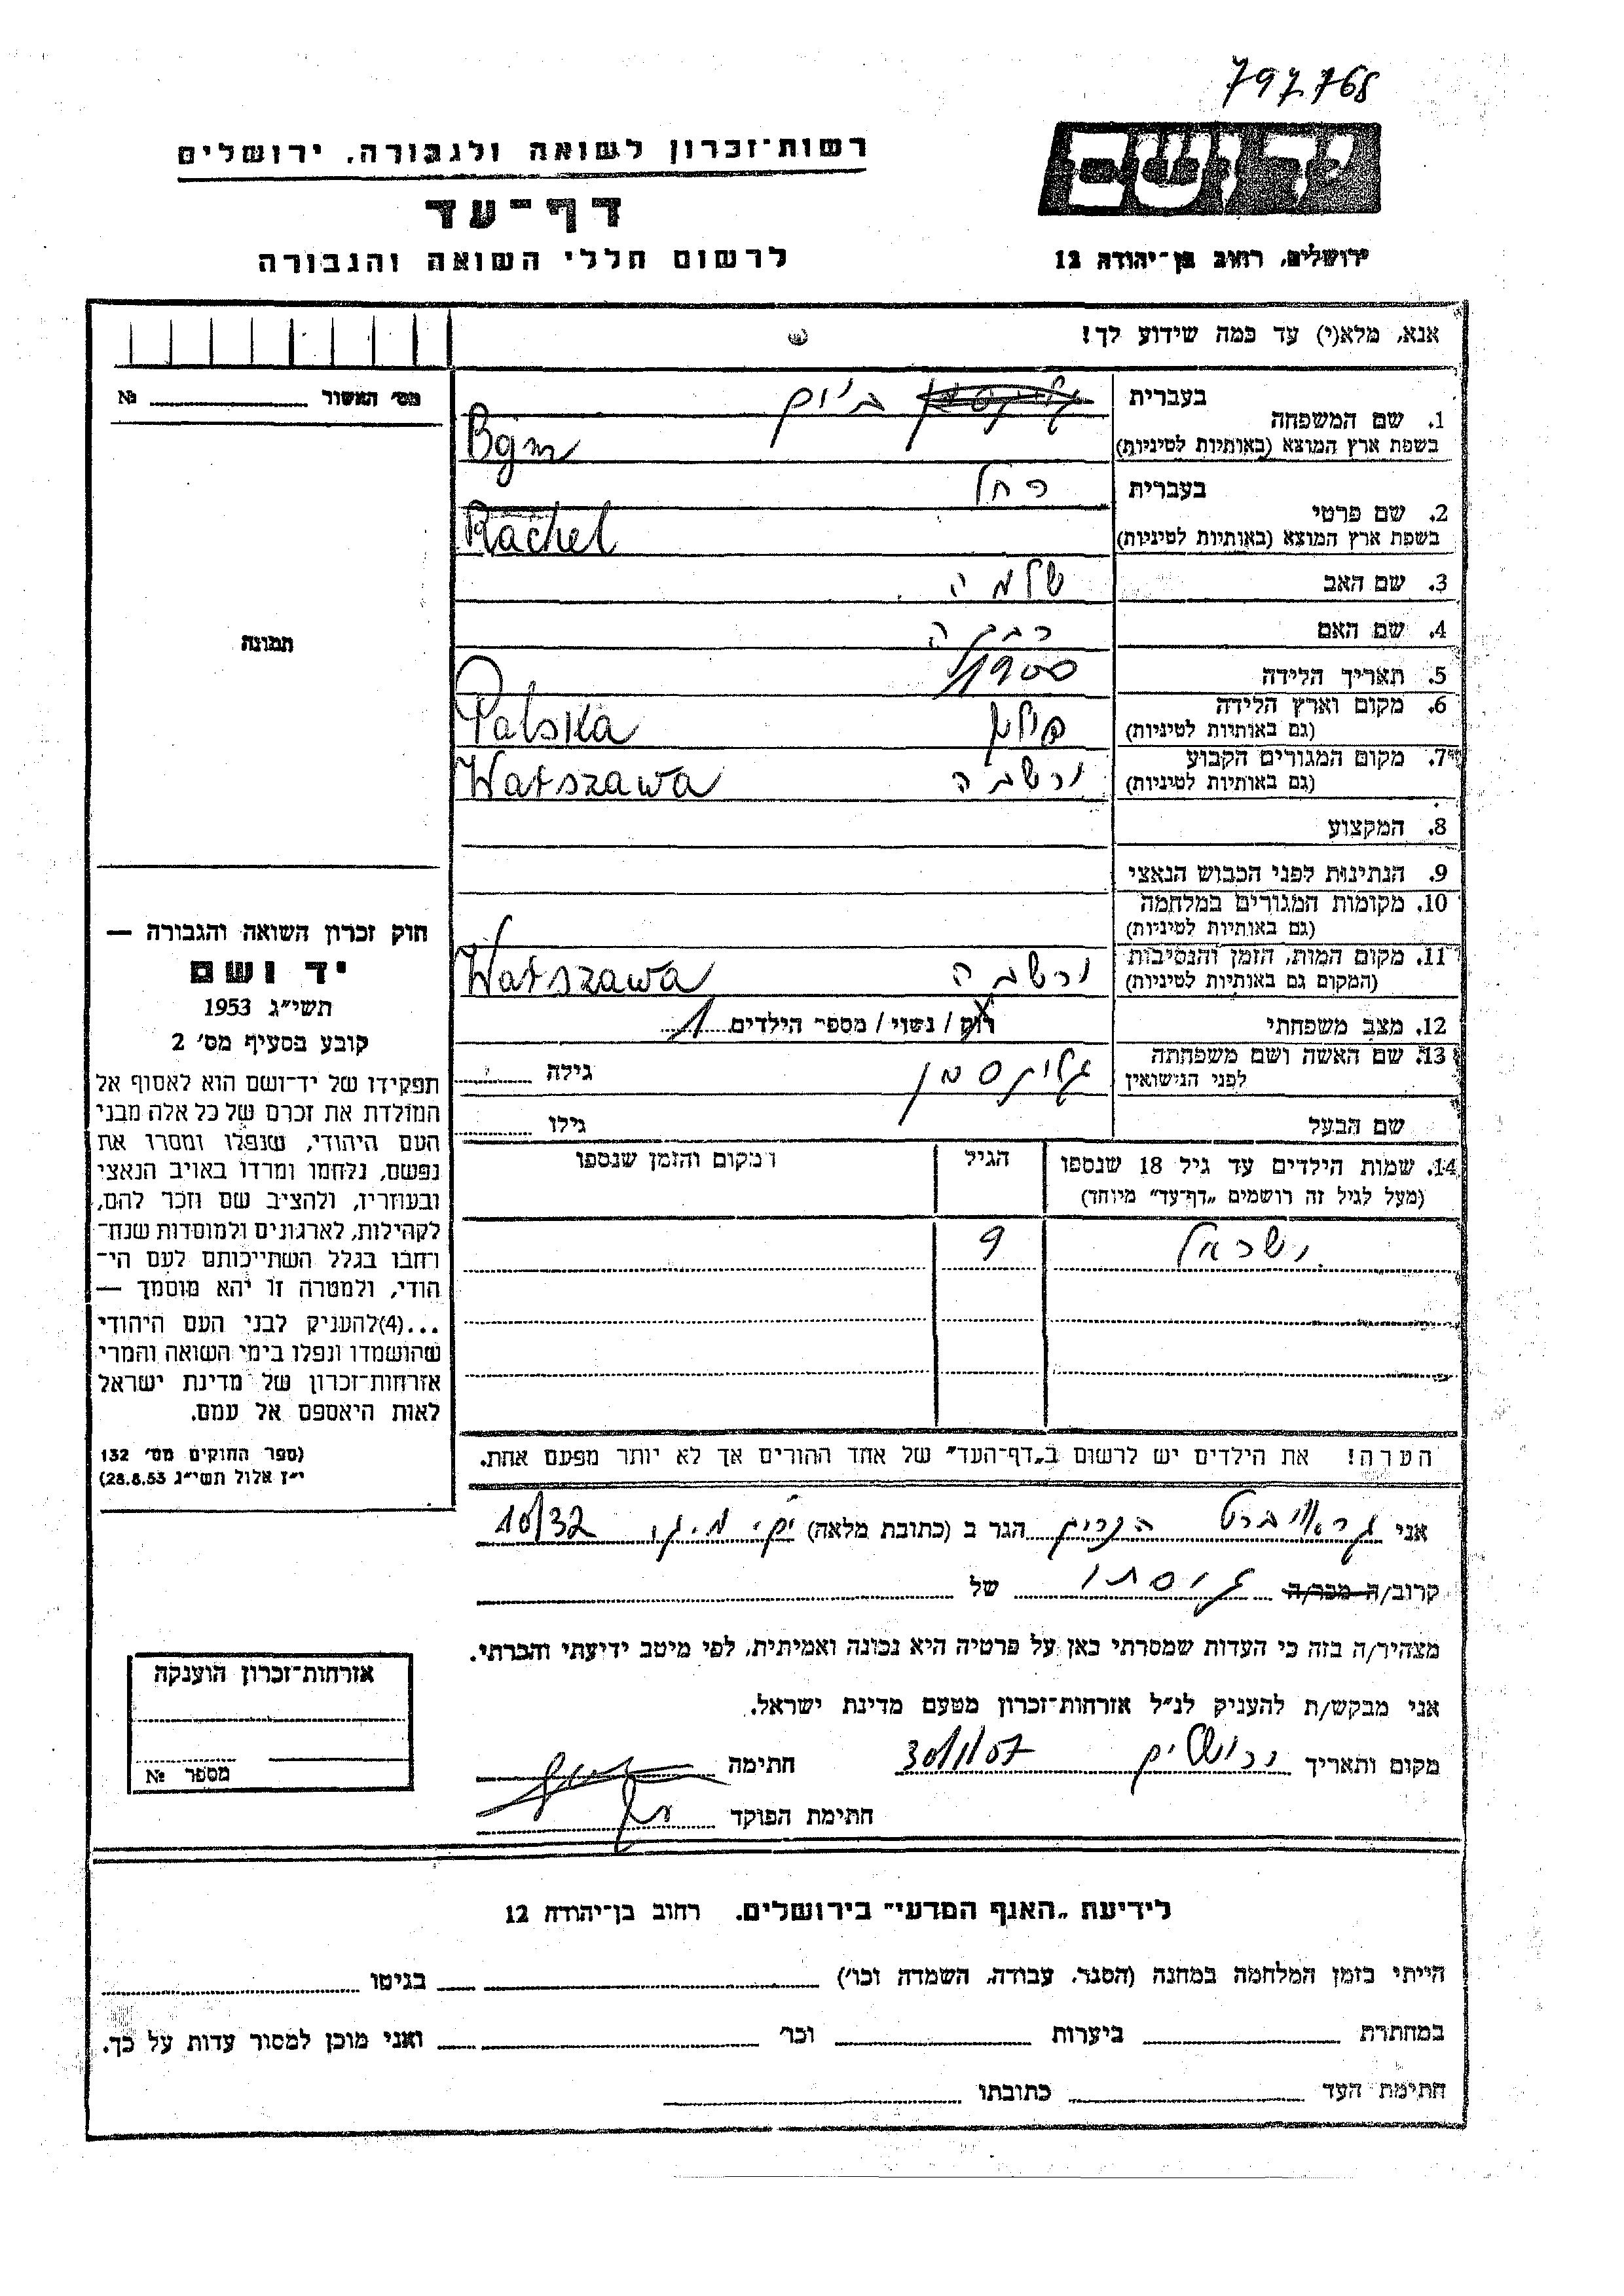 797768
רשות־זכרון לשואה ולגבורה, ירושלים
יד ושם
דף־עד
לרשום חללי השואה והגבורה
ירושלים, רחוב בן־יהודה 12
אנא, מלא(י) עד כמה שידוע לך!
מס' האשור № 
1. שם המשפחה בעברית ביום
בשפת ארץ המוצא (באותיות לטיניות) Bgm
2. שם פרטי בעברית רחל
בשפת ארץ המוצא (באותיות לטיניות) Rachel
3. שם האב שלמה
4. שם האם רבקה
תמונה
5. תאריך הלידה 1900
6. מקום וארץ הלידה (גם באותיות לטיניות) פולין Polska
7. מקום המגורים הקבוע (גם באותיות לטיניות) ורשבה Warszawa
8. המקצוע
9. הנתינות לפני הכבוש הנאצי
10. מקומות המגורים במלחמה (גם באותיות לטיניות)
11. מקום המות, הזמן והנסיבות (המקום גם באותיות לטיניות) ורשבה Warszawa
12. מצב משפחתי רווק / נשוי / מספר הילדים 1
13. שם האשה ושם משפחתה לפני הנישואין גליקסמן גילה
שם הבעל גילו
14. שמות הילדים עד גיל 18 שנספו הגיל המקום והזמן שנספו
(מעל לגיל זה רושמים „דף־עד" מיוחד)
ישראל 9
הערה! את הילדים יש לרשום ב„דף־העד" של אחד ההורים אך לא יותר מפעם אחת.
חוק זכרון השואה והגבורה —
יד ושם
תשי"ג 1953
קובע בסעיף מס' 2
תפקידו של יד־ושם הוא לאסוף אל
המולדת את זכרם של כל אלה מבני
העם היהודי, שנפלו ומסרו את
נפשם, נלחמו ומרדו באויב הנאצי
ובעוזריו, ולהציב שם וזכר להם,
לקהילות, לארגונים ולמוסדות שנח־
רבו בגלל השתייכותם לעם הי־
הודי, ולמטרה זו יהא מוסמך —
...(4)להעניק לבני העם היהודי
שהושמדו ונפלו בימי השואה והמרי
אזרחות־זכרון של מדינת ישראל
לאות היאספם אל עמם.
(ספר החוקים מס' 132
י"ז אלול תשי"ג 28.8.53)
אני הגר ב (כתובת מלאה) 10/32
קרוב/ה מכר/ה גיסתו של
מצהיר/ה בזה כי העדות שמסרתי כאן על פרטיה היא נכונה ואמיתית, לפי מיטב ידיעתי והכרתי.
אני מבקש/ת להעניק לנ"ל אזרחות־זכרון מטעם מדינת ישראל.
מקום ותאריך ירושלים 30/1/57 חתימה
חתימת הפוקד
אזרחות־זכרון הוענקה
מספר №
לידיעת „האגף המדעי" בירושלים, רחוב בן־יהודה 12
הייתי בזמן המלחמה במחנה (הסגר, עבודה, השמדה וכו') בגיטו
במחתרת ביערות וכו' ואני מוכן למסור עדות על כך.
חתימת העד כתובתו